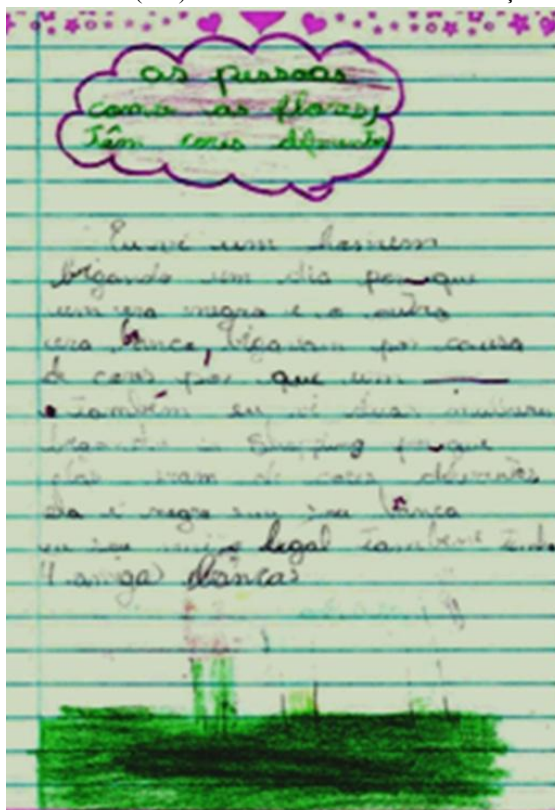 as pessoas
como as flores,
Têm cores diferentes
Eu vi um homem
brigando um dia por que
um era negro e o outro
era branco, bigavam por causa
de cores por que um
também eu vi duas
brigando in Shopping por que
elas eram de cores diferentes
ela é negra eu sou branca
eu sou legal também tenho
4 amigas brancas